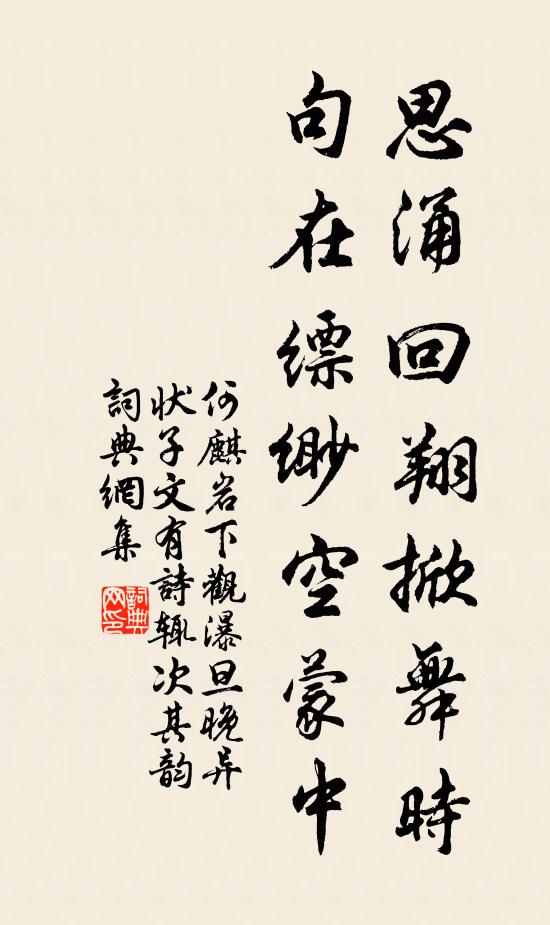 思涌回翔掀舞時
句在縹緲空蒙中
何麒岩下觀瀑旦晚异
状子文有詩辄次其韵
詞典網集
詞典网印